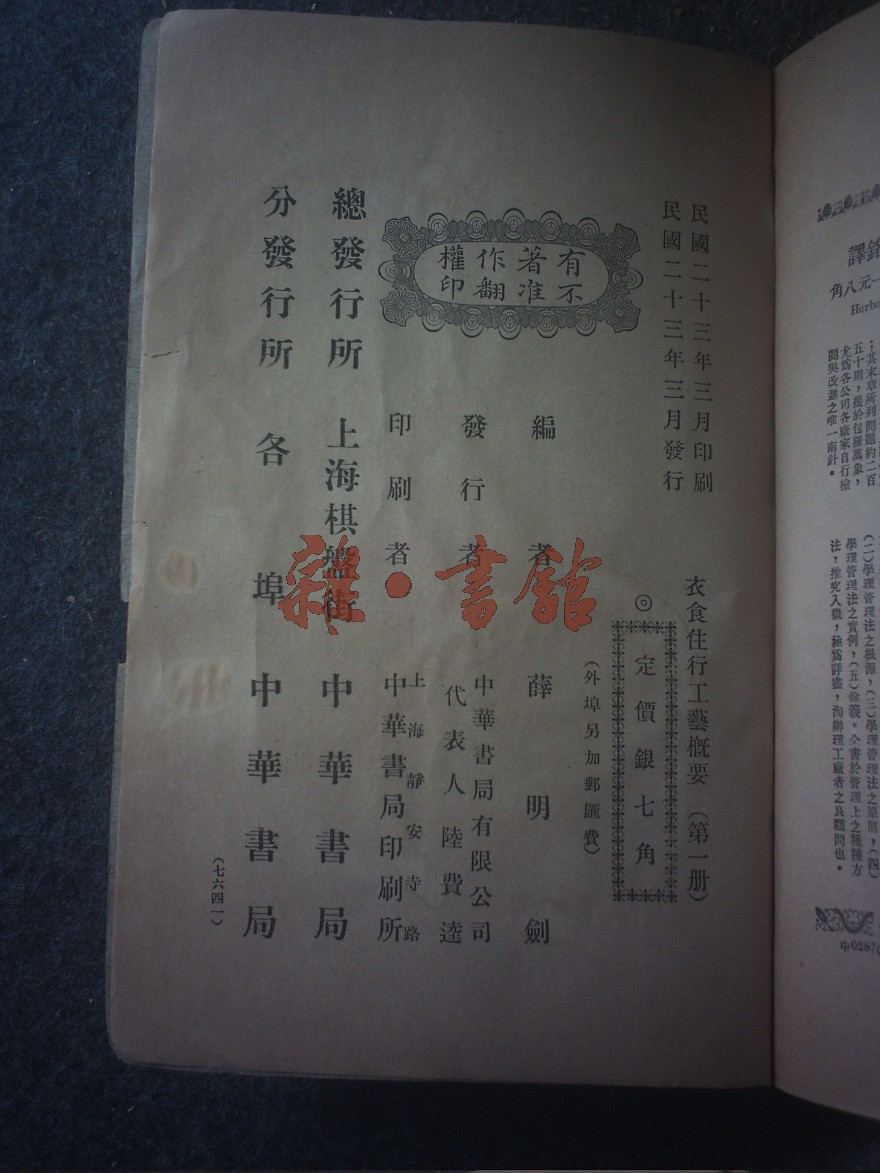 民國二十三年三月印刷
民國二十三年三月發行
衣食住行工藝概要（第一册）
◎定價銀七角
（外埠另加郵匯費）
有著作權
不准翻印
編者 薛明劍
發行者 中華書局有限公司
代表人 陸費逵
印刷者 上海靜安寺路
中華書局印刷所
總發行所 上海棋盤街 中華書局
分發行所 各埠 中華書局
（七六四一）
雜·書館
譯
一元八角
Herbe
；其末章所列問題約二百
五十則，提於包羅萬象，
尤爲各公司各廠家自行檢
閱與改進之唯一南針。
（二）學理管理法之根源，（三）學理管理法之原則，（四）
學理管理法之實例，（五）餘義。全書於管理上之種種方
法，推究入微，極爲詳盡，洵辦理工廠者之良顧問也。
中0287(